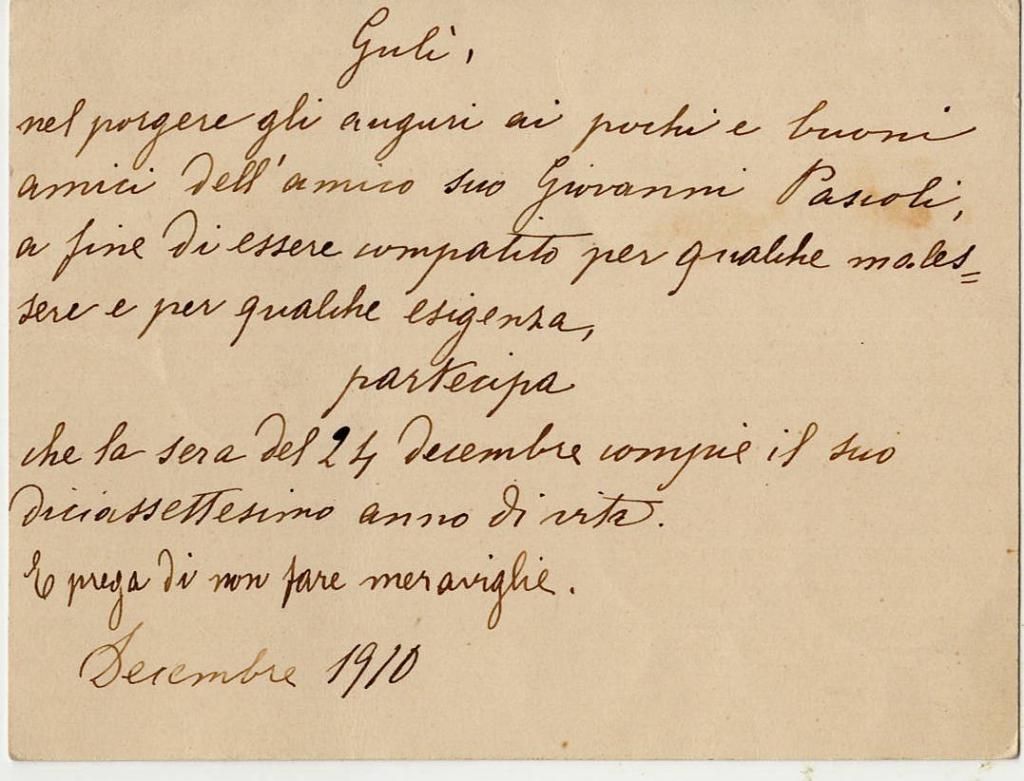 Gulì,
nel porgere gli auguri ai pochi e buoni
amici dell'amico suo Giovanni Pascoli,
a fine di essere compatito per qualche males=
sere e per qualche esigenza,
partecipa
che la sera del 24 decembre compiè il suo
diciassettesimo anno di vita.
E prega di non fare meraviglie.
Decembre 1910